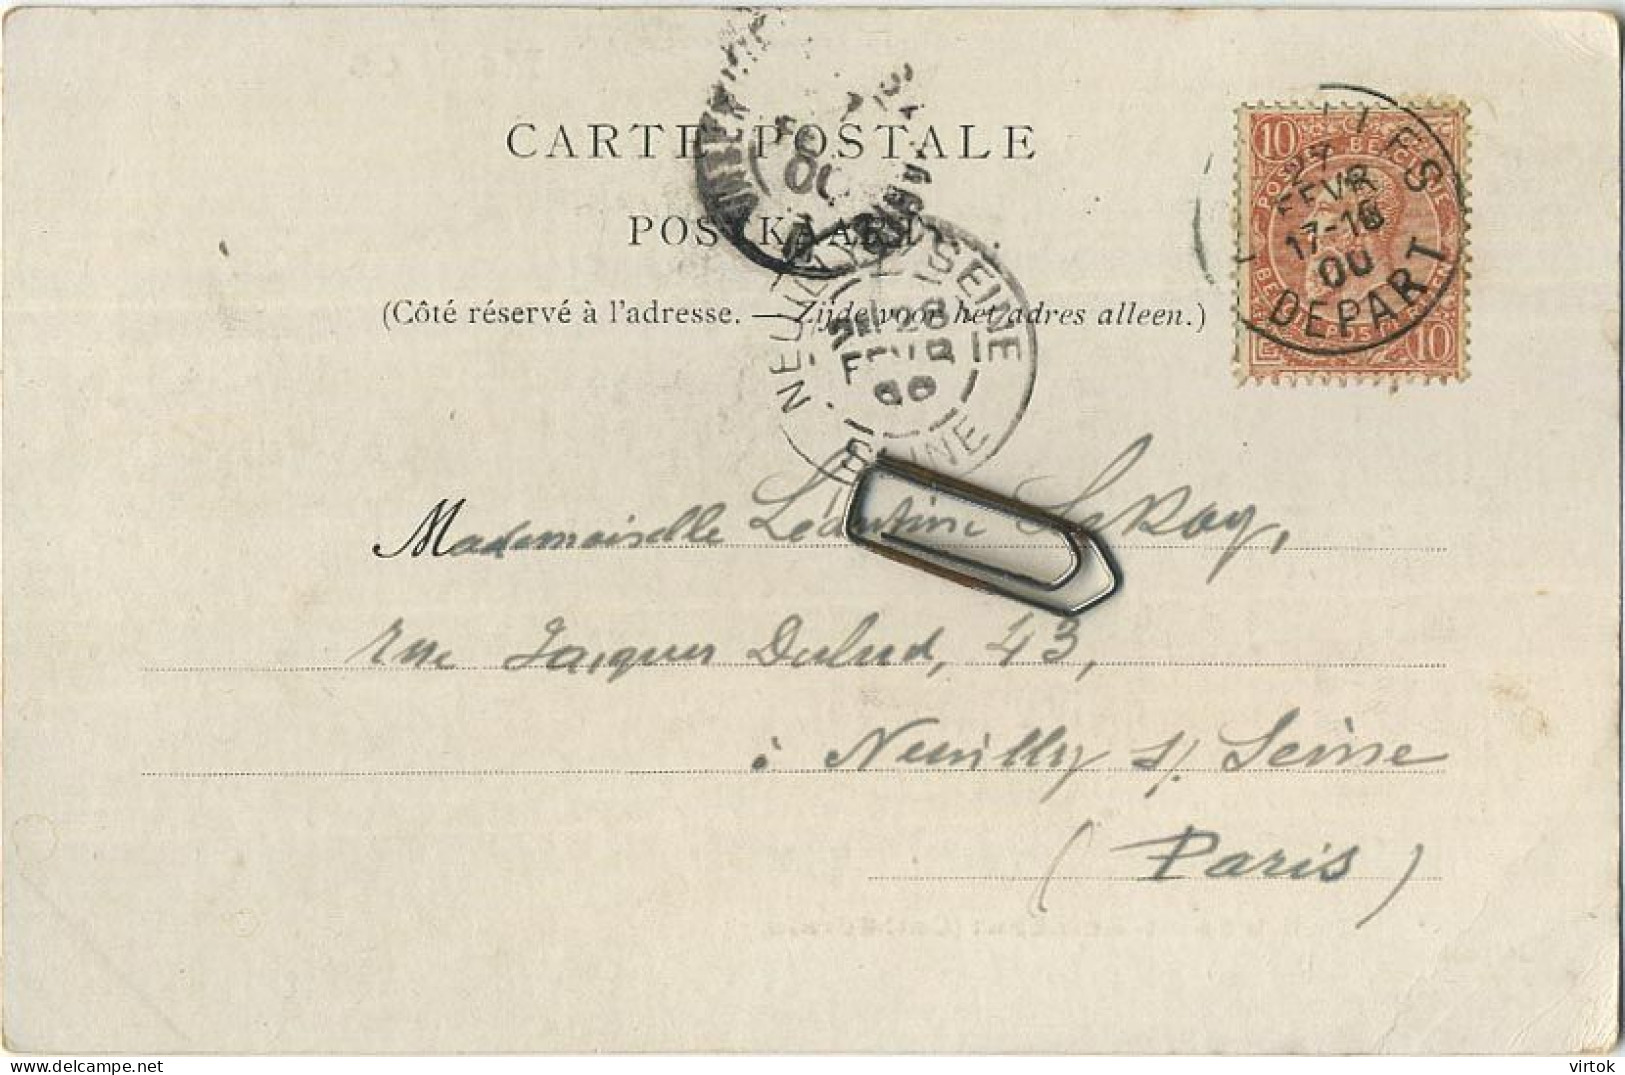 CARTE POSTALE
POSTKAART
(Côté réservé à l'adresse. — Zijde voor het adres alleen.)
10 BELGIQUE
27
FEVR
17-18
00
DEPART
10
NEUILLY S SEINE
28
FEVR
00
SEINE
Mademoiselle Léontine LeRoy,
rue Jacques Dulud, 43,
à Neuilly s/ Seine
(Paris)
virtok